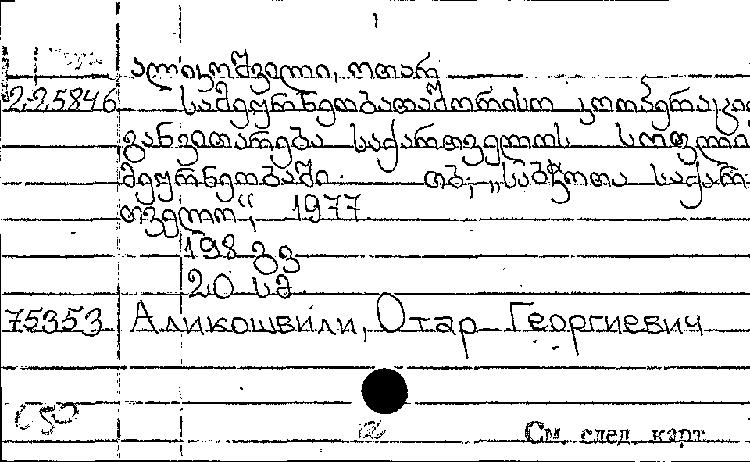 ალიკოშვილი, ოთარ
225846 სამეურნეობათაშორისო კოოპერაციი
განვითარება საქართველოს სოფლი
მეურნეობაში. თბ., „საბჭოთა საქარ-
თველო“, 1977
198 გვ
20 სმ
75353 Аликошвили, Отар Георгиевич
C50
См. след. карт